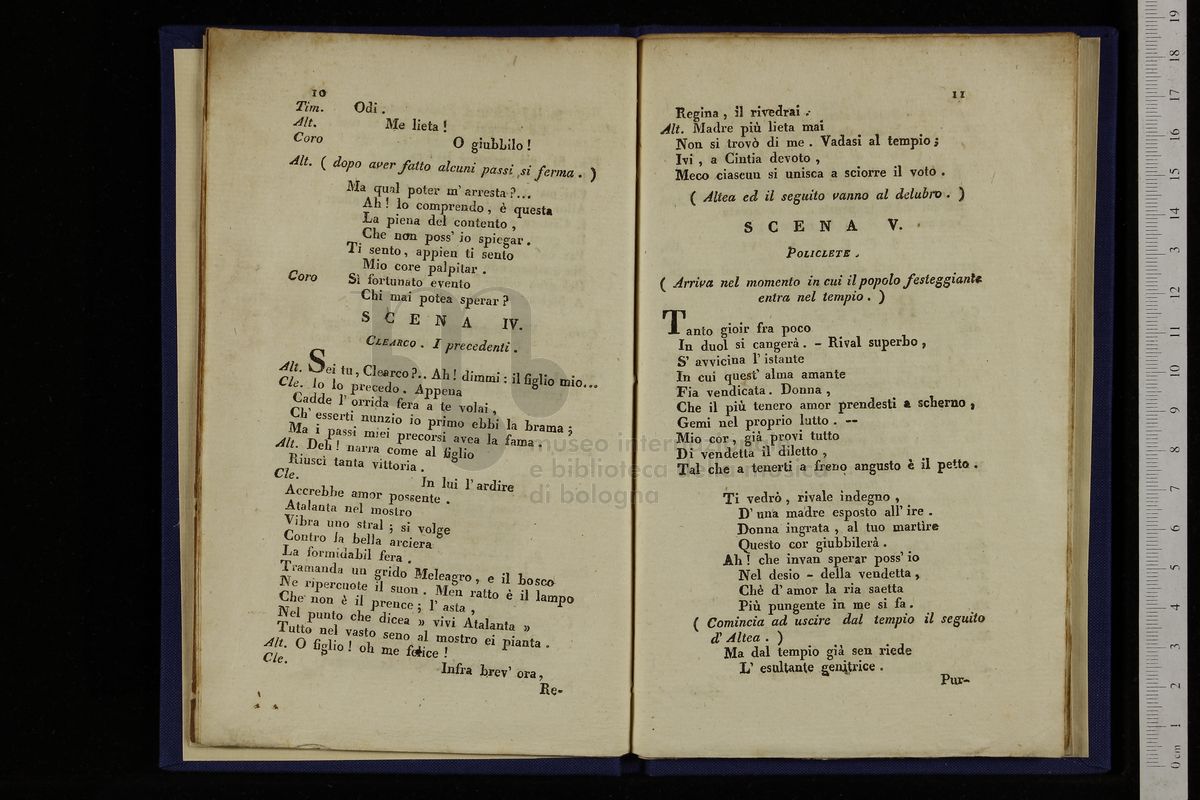 10
Tim. Odi .
Alt. Me lieta !
Coro O giubbilo !
Alt. ( dopo aver fatto alcuni passi , si ferma . )
Ma qual poter m' arresta ?...
Ah ! lo comprendo , è questa
La piena del contento ,
Che non poss' io spiegar .
Ti sento , appien ti sento
Mio core palpitar .
Coro Sì fortunato evento
Chi mai potea sperar ?
S C E N A IV.
CLEARCO . I precedenti .
Alt. Sei tu , Clearco ?.. Ah ! dimmi : il figlio mio...
Cle. Io lo precedo . Appena
Cadde l' orrida fera a te volai ,
Ch' esserti nunzio io primo ebbi la brama ;
Ma i passi miei precorsi avea la fama .
Alt. Deh ! narra come al figlio
Riuscì tanta vittoria .
Cle. In lui l' ardire
Accrebbe amor possente .
Atalanta nel mostro
Vibra uno stral ; si volge
Contro la bella arciera
La formidabil fera .
Tramanda un grido Meleagro , e il bosco
Ne ripercuote il suon . Men ratto è il lampo
Che non è il prence ; l' asta ,
Nel punto che dicea » vivi Atalanta »
Tutto nel vasto seno al mostro ei pianta .
Alt. O figlio ! oh me felice !
Cle. Infra brev' ora ,
Re-
11
Regina , il rivedrai .
Alt. Madre più lieta mai
Non si trovò di me . Vadasi al tempio ;
Ivi , a Cintia devoto ,
Meco ciascun si unisca a sciorre il voto .
( Altea ed il seguito vanno al delubro . )
S C E N A V.
POLICLETE .
( Arriva nel momento in cui il popolo festeggiante
entra nel tempio . )
Tanto gioir fra poco
In duol si cangerà . - Rival superbo ,
S' avvicina l' istante
In cui quest' alma amante
Fia vendicata . Donna ,
Che il più tenero amor prendesti a scherno ,
Gemi nel proprio lutto . --
Mio cor , già provi tutto
Di vendetta il diletto ,
Tal che a tenerti a freno angusto è il petto .
Ti vedrò , rivale indegno ,
D' una madre esposto all' ire .
Donna ingrata , al tuo martìre
Questo cor giubbilerà .
Ah ! che invan sperar poss' io
Nel desio - della vendetta ,
Chè d' amor la ria saetta
Più pungente in me si fa .
( Comincia ad uscire dal tempio il seguito
d' Altea . )
Ma dal tempio già sen riede
L' esultante genitrice .
Pur-
museo internazionale
e biblioteca della musica
di bologna
0 cm 1 2 3 4 5 6 7 8 9 10 11 12 13 14 15 16 17 18 19